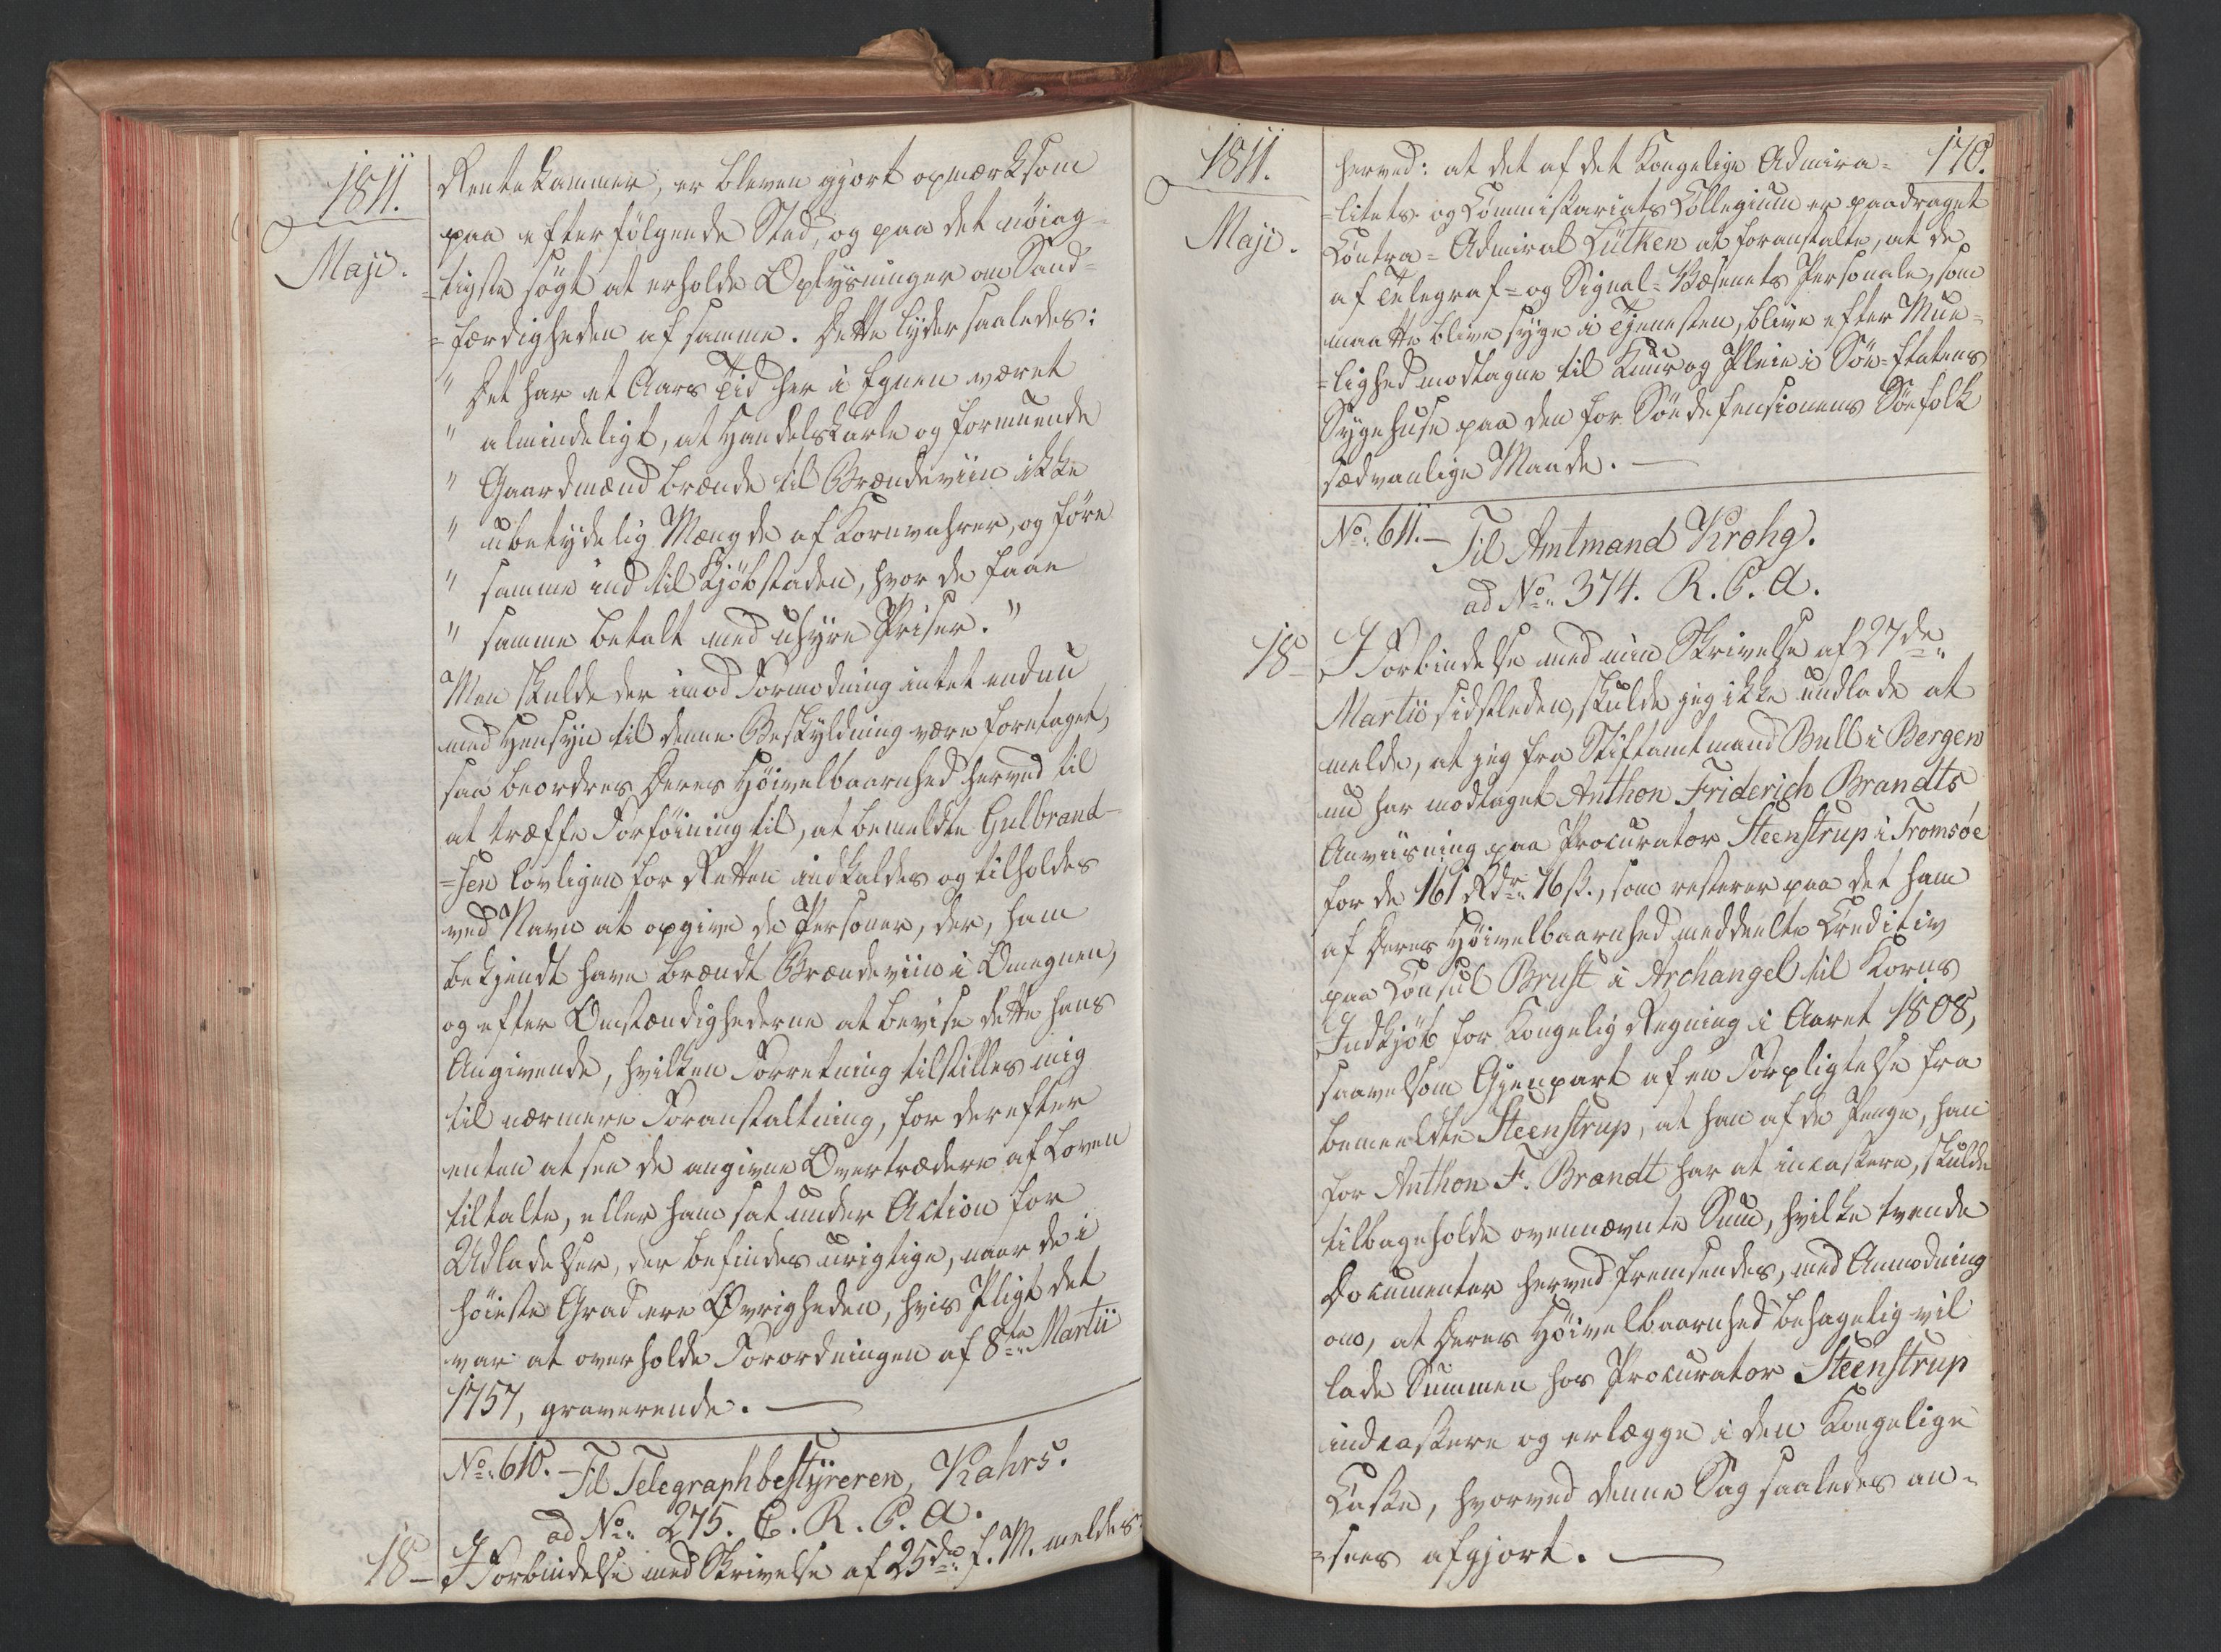 1811.
Maji.
Rentekammer, er bleven gjort opmærksom
paa efterfølgende Sted, og paa det nöiag-
=tigste søgt at erholde Oplysninger om Sand-
=færdigheden af samme. Dette lyder saaledes:
" Det har et Aars Tid her i Egnen været
" almindeligt, at Handelskarle og formuende
" Gaardmænd brænde til Brændeviin ikke
" ubetydelig Mængde af Kornvahrer, og føre
" samme ind til Kjöbstaden, hvor de faae
" samme betalt med uhyre Priser."
Men skulde der imod Formodning intet endnu
med Hensyn til denne Beskyldning være foretaget,
saa beordres Deres Höivelbaarnhed herved til
at træffe Forföining til, at bemeldte Gulbrand-
=sen lovligen for Retten indkaldes og tilholdes
ved Navn at opgive de Personer, der, ham
bekjendt have brændt Brændeviin i Omegnen,
og efter Omstændighederne at bevise dette hans
Angivende, hvilken Forretning tilstilles mig
til nærmere Foranstaltning, for derefter
enten at see de angivne Overtrædere af Loven
tiltalte, eller ham sat under Action for
Udladelser, der befindes urigtige, naar de i
höieste Grad ere Øvrigheden, hvis Pligt det
var at overholde Forordningen af 8de Martii
1757, graverende. —
No. 610. — Til Telegraphbestÿreren, Kahrs.
ad No. 275. C. R. C. A.
18 — I Forbindelse med Skrivelse af 25de f. M. meldes
1811.
Maji.
170.
herved: at det af det Kongelige Admira-
=litets- og Commissariats Collegium er paadraget
Contra-Admiral Lütken at foranstalte, at de
af Telegraf- og Signal-Væsenets Personale, som
maatte blive syge i Tjenesten, blive efter Mue-
=lighed modtagne til Kuur og Pleie i Söe-Etatens
Sygehuse paa den for Söedefensionens Söefolk
sædvanlige Maade. —
No. 611. — Til Amtmand Krohg.
ad No. 374. R. C. A.
18 — I Forbindelse med min Skrivelse af 27de
Martii sidstleden, skulde jeg ikke undlade at
melde, at jeg fra Stiftamtmand Bull i Bergen
nu har modtaget Anthon Friderich Brandts
Anviisning paa Procurator Steenstrup i Tromsøe
for de 161 Rdr. 76 s., som resterer paa det ham
af Deres Höivelbaarnhed meddeelte Creditiv
paa Consul Brust i Archangel til Korns
Indkjöb for Kongelig Regning i Aaret 1808,
saavelsom Gjenpart af en Forpligtelse fra
bemeeldte Steenstrup, at han af de Penge, han
for Anthon F. Brandt har at incassere, skulde
tilbageholde ovennævnte Sum, hvilke tvende
Documenter herved fremsendes, med Anmodning
om, at Deres Höivelbaarnhed behagelig vil
lade Summen hos Procurator Steenstrup
indcassere og erlægge i den Kongelige
Casse, hvorved denne Sag saaledes an-
=sees afgjort. —